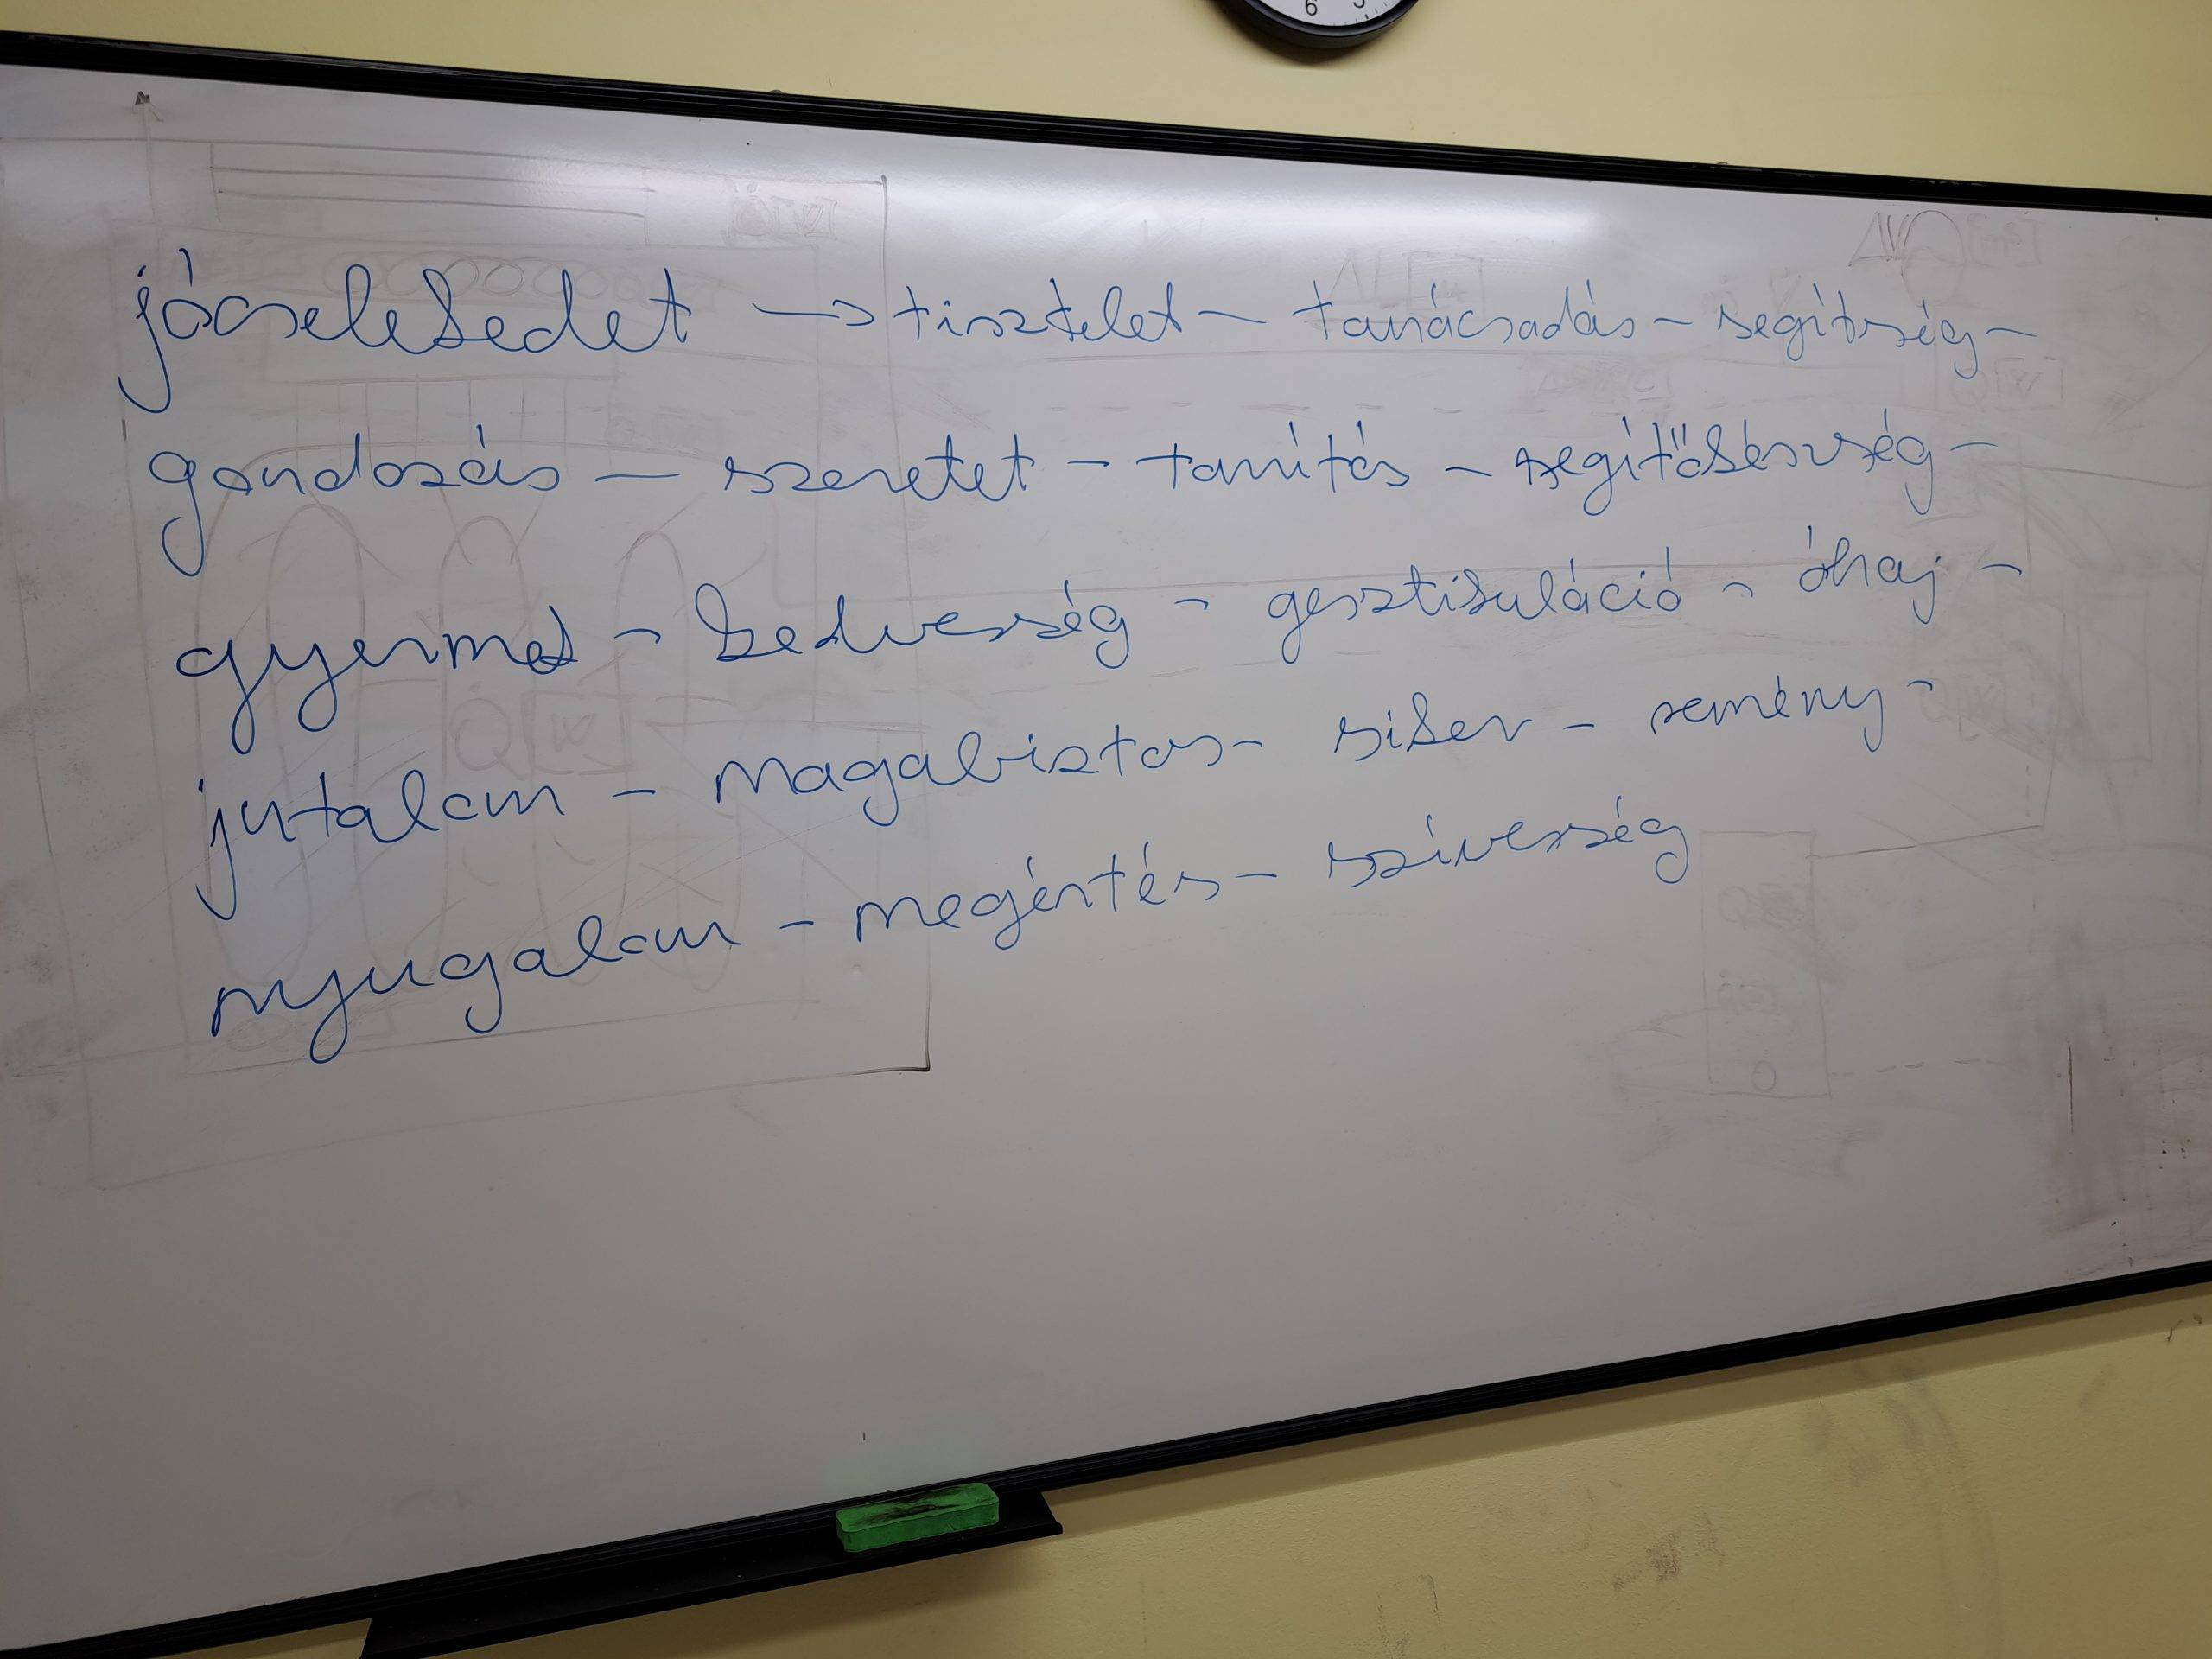 jócselekedet → tisztelet - tanácsadás - segítség -
gondozás - szeretet - tanítás - segítőkészség -
gyermek - kedvesség - gesztikuláció - óhaj -
jutalom - magabiztos - siker - remény -
nyugalom - megértés - szívesség